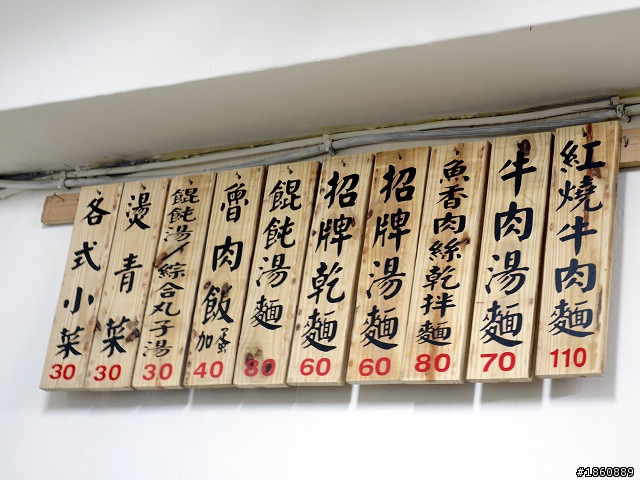 紅燒牛肉麵
110
牛肉湯麵
70
魚香肉絲乾拌麵
80
招牌湯麵
60
招牌乾麵
60
餛飩湯麵
80
魯肉飯加蛋
40
餛飩湯/綜合丸子湯
30
燙青菜
30
各式小菜
30
#1860889